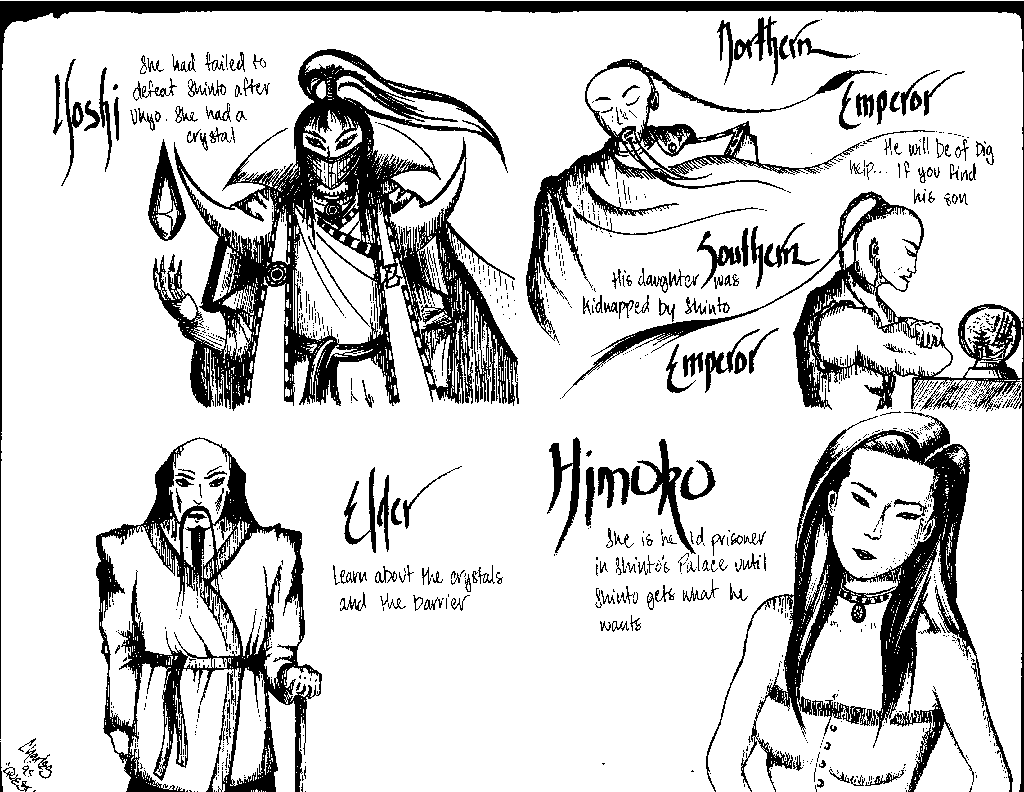 Hoshi
She had failed to
defeat Shinto after
Uhyo. She had a
crystal
Northern
Emperor
He will be of big
help... If you find
his son
Southern
His daughter was
kidnapped by Shinto
Emperor
Elder
Learn about the crystals
and the barrier
Himoko
She is held prisoner
in Shinto's Palace until
Shinto gets what he
wants